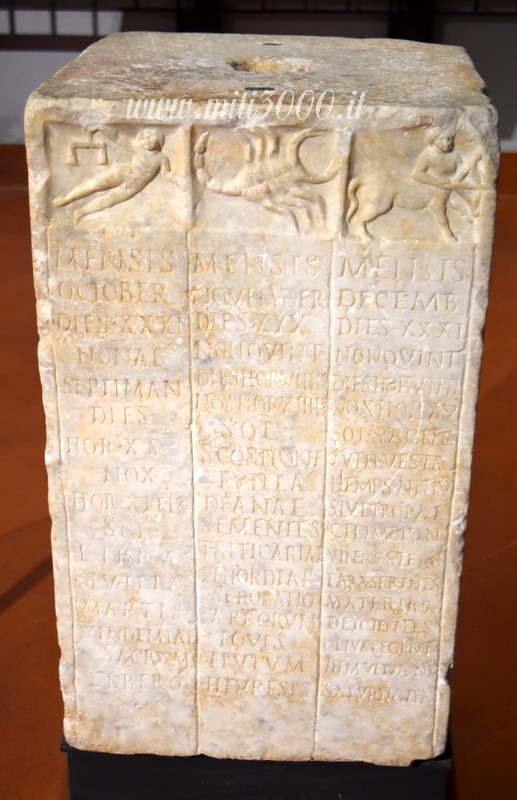 www.mili3000.it
MENSIS
OCTOBER
DIES·XXXI
NONAE
SEPTIMAN
DIES
HOR·X S
NOX
HOR·XIIIS
SOL
LIBRA
TUTELA
MARTI
VINDEMIAE
SACRUM
LIBERO
MENSIS
NOVEMBER
DIES·XXX
NON QVINT
DIES HOR VIIII
NOX HOR XIIII
SOL
SCORPIONE
TVTELA
DEANAE
SEMENTES
TRITICARIAE
ET HORDIAR
SCROBATIO
ARBORVM
IOVIS
EPVLVM
HEVRESIS
MENSIS
DECEMB
DIES·XXXI
NON QVINT
DIES HOR VIIII
NOX HOR XV
SOL·SAGITT
TVTEL VESTAE
HIEMPS INITIV
SIVE TROPAE
CHIMERIN
VINEAS STERC
FABA SERENTES
MATERIAS
DEICIENTES
SATVRNALIA